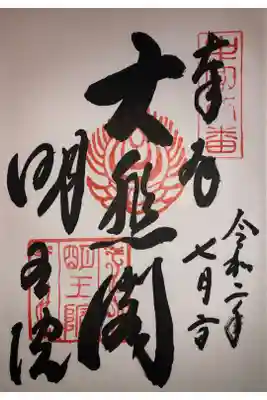 中国八番
奉拝
大悲閣
明王院
令和二年
七月
明王院